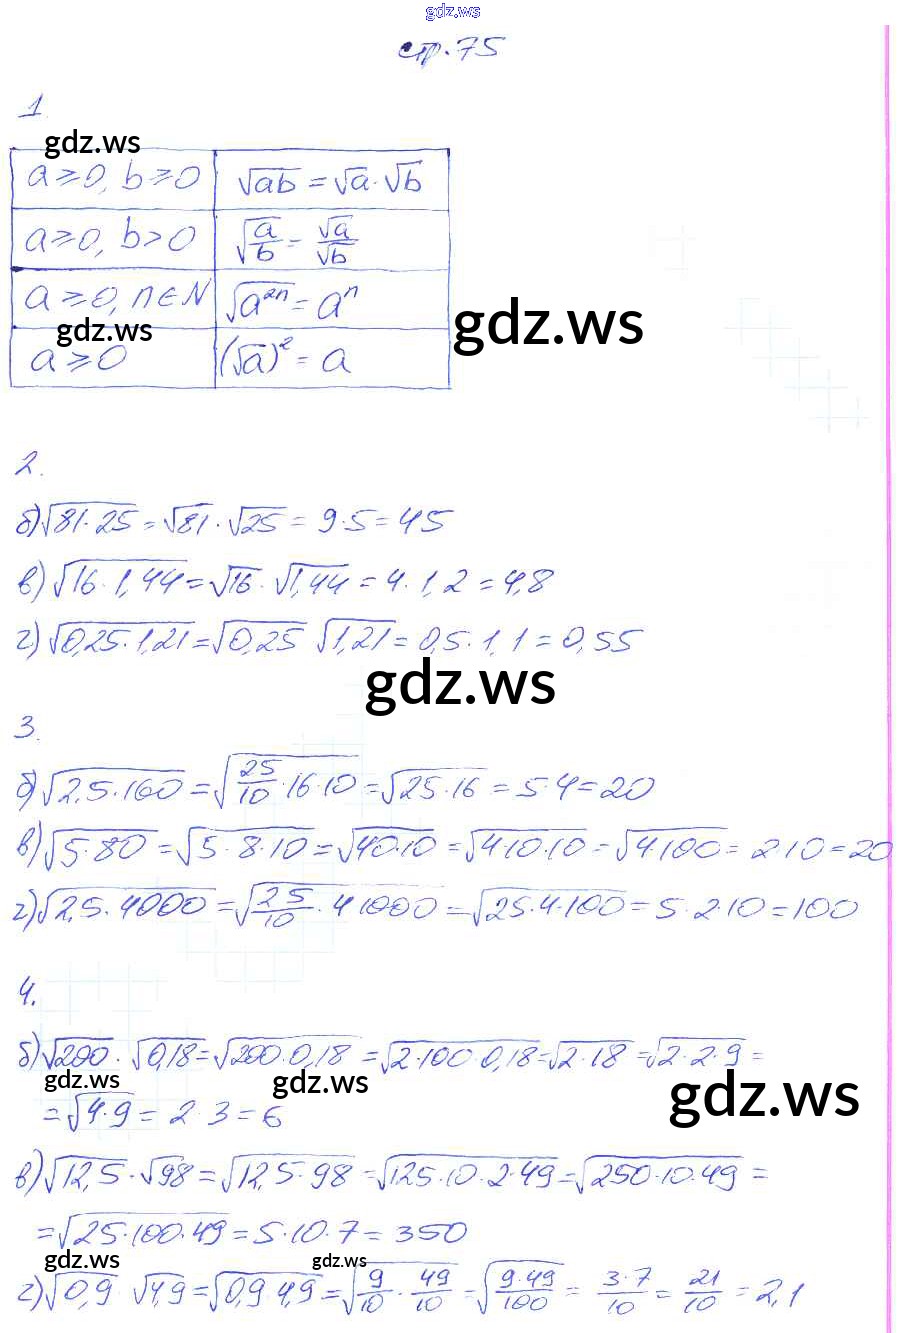 gdz.ws
стр. 75
1.
gdz.ws
a≥0, b≥0 √ab = √a·√b
a≥0, b>0 √(a/b) = √a/√b
a≥0, n∈N √(a²ⁿ) = aⁿ
gdz.ws gdz.ws
a≥0 (√a)² = a
2.
б) √(81·25) = √81 · √25 = 9·5 = 45
в) √(16·1,44) = √16 · √1,44 = 4·1,2 = 4,8
г) √(0,25·1,21) = √0,25 √1,21 = 0,5·1,1 = 0,55
gdz.ws
3.
б) √(2,5·160) = √(25/10·16·10) = √(25·16) = 5·4 = 20
в) √(5·80) = √(5·8·10) = √(40·10) = √(4·10·10) = √(4·100) = 2·10 = 20
г) √(2,5·4000) = √(25/10·4 1000) = √(25·4·100) = 5·2·10 = 100
4.
б) √200 · √0,18 = √(200·0,18) = √(2·100·0,18) = √(2·18) = √(2·2·9) =
gdz.ws gdz.ws gdz.ws
= √(4·9) = 2·3 = 6
в) √12,5 · √98 = √(12,5·98) = √(125·10·2·49) = √(250·10·49) =
= √(25·100·49) = 5·10·7 = 350
gdz.ws gdz.ws
г) √0,9 · √4,9 = √(0,9·4,9) = √(9/10 · 49/10) = √(9·49/100) = 3·7/10 = 21/10 = 2,1